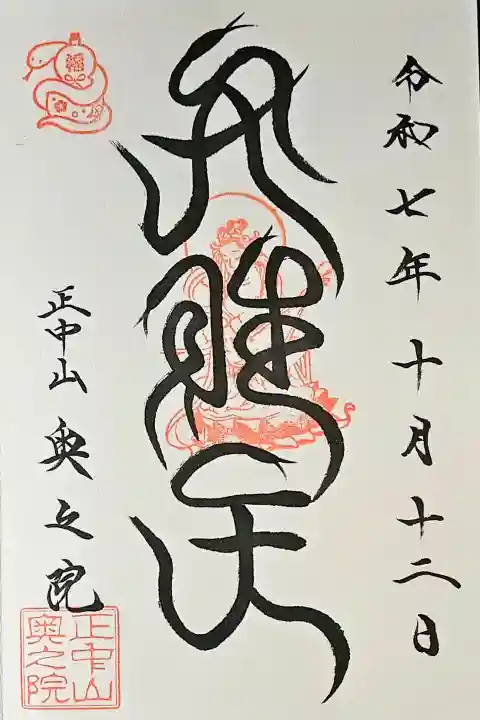 令和七年十月十二日
弁財天
正中山奥之院
正中山
奥之院